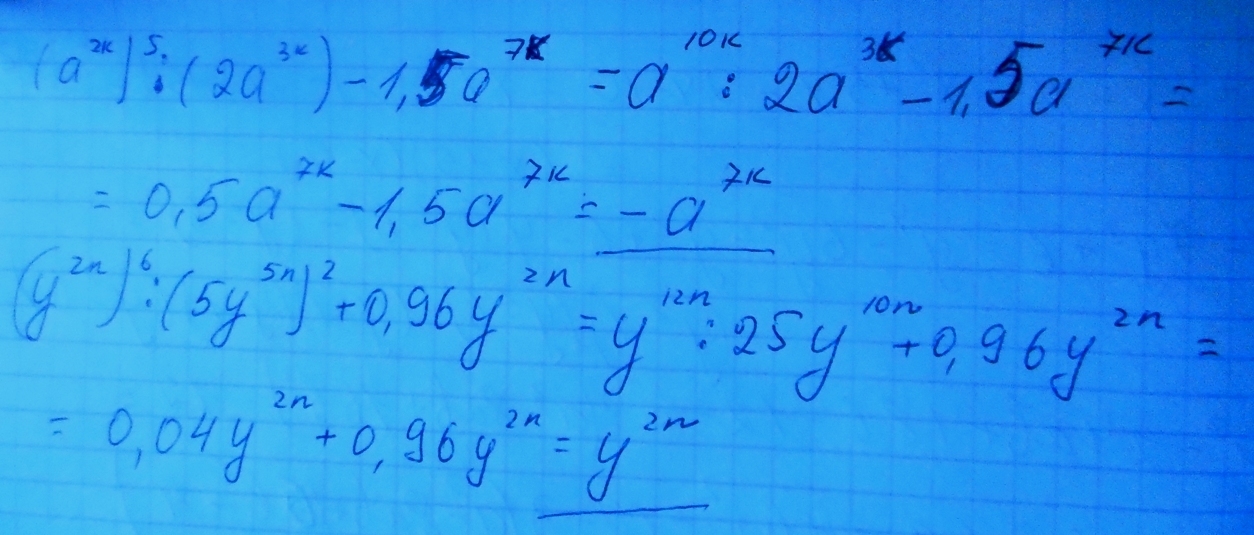 (a^{2k})^5:(2a^{3k})-1,5a^{7k}=a^{10k}:2a^{3k}-1,5a^{7k}=
=0,5a^{7k}-1,5a^{7k}=-a^{7k}
(y^{2n})^6:(5y^{5n})^2+0,96y^{2n}=y^{12n}:25y^{10n}+0,96y^{2n}=
=0,04y^{2n}+0,96y^{2n}=y^{2n}